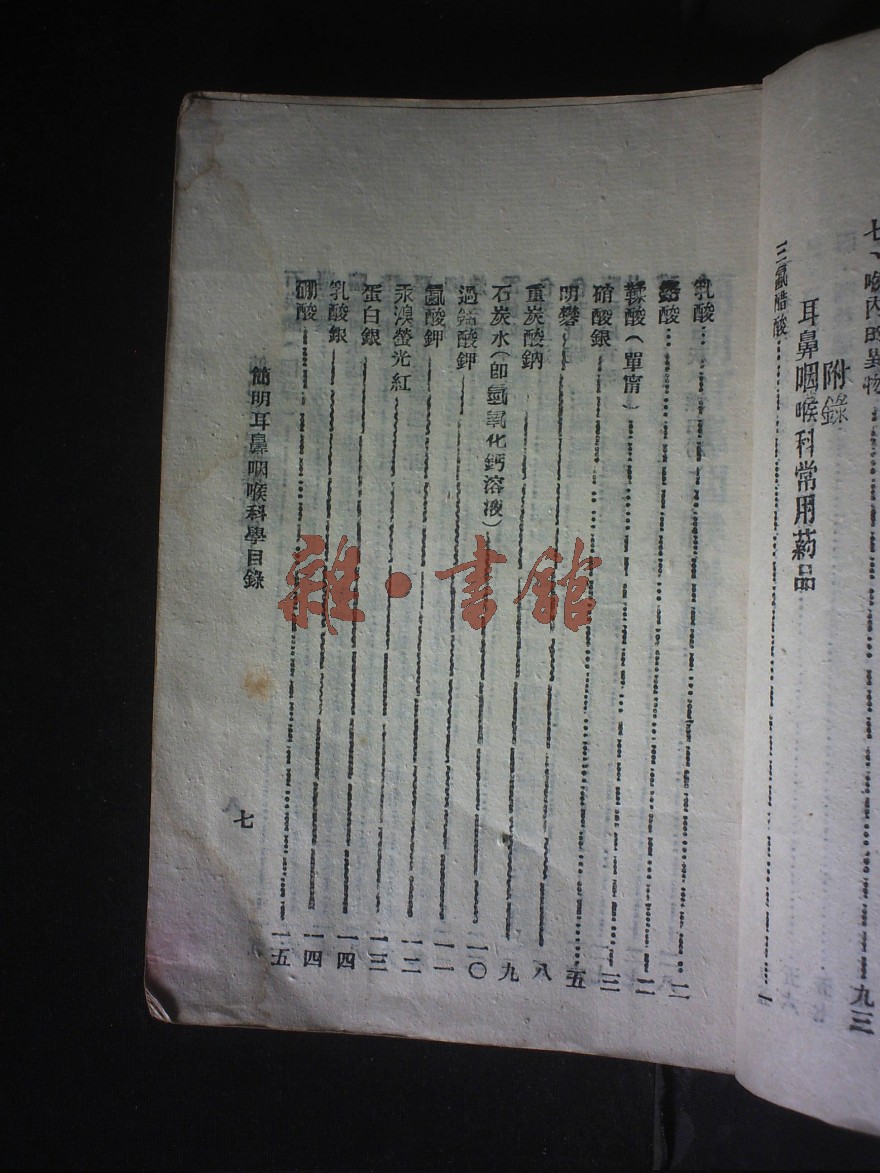 七、喉內的異物 九三
附錄
耳鼻咽喉科常用葯品
三氯醋酸 一
乳酸 二
鉻酸 二
鞣酸(單甯) 三
硝酸銀
明礬 五
重炭酸鈉 八
石炭水(即氫氧化鈣溶液) 九
過錳酸鉀 一〇
氯酸鉀 一一
汞溴螢光紅 一二
蛋白銀 一三
乳酸銀 一四
硼酸 一五
簡明耳鼻咽喉科學目錄
七
雜·書館